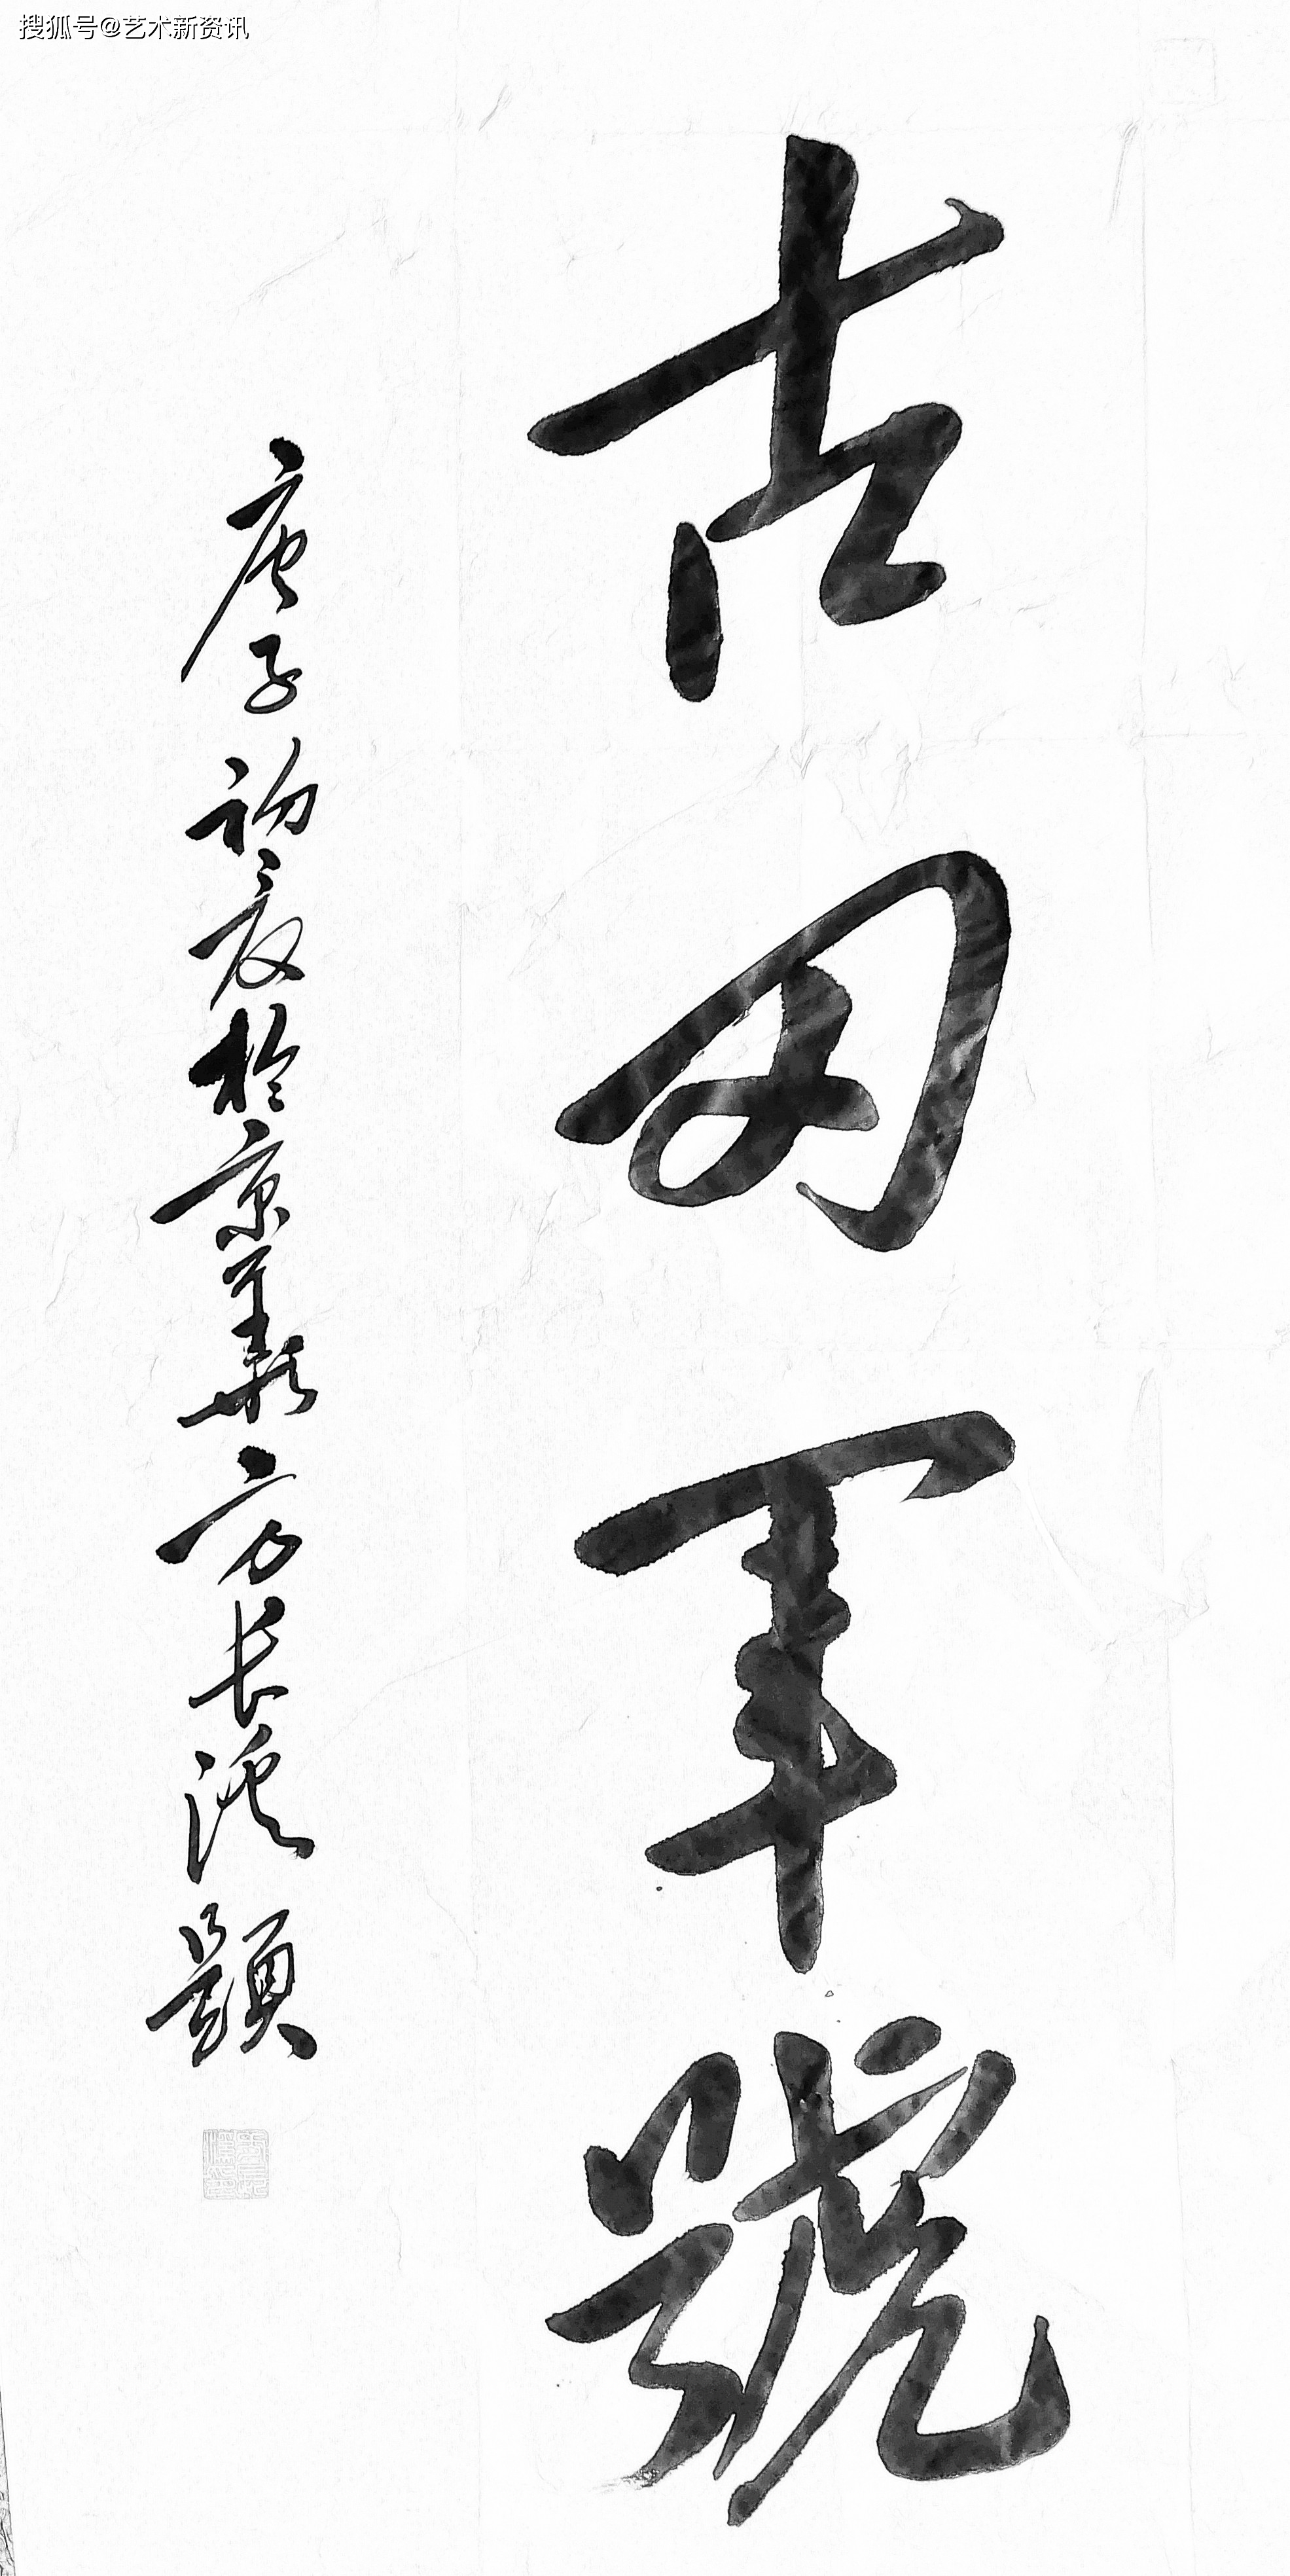 搜狐号@艺术新资讯
古田军號
庚子初夏於京華 方长溪題